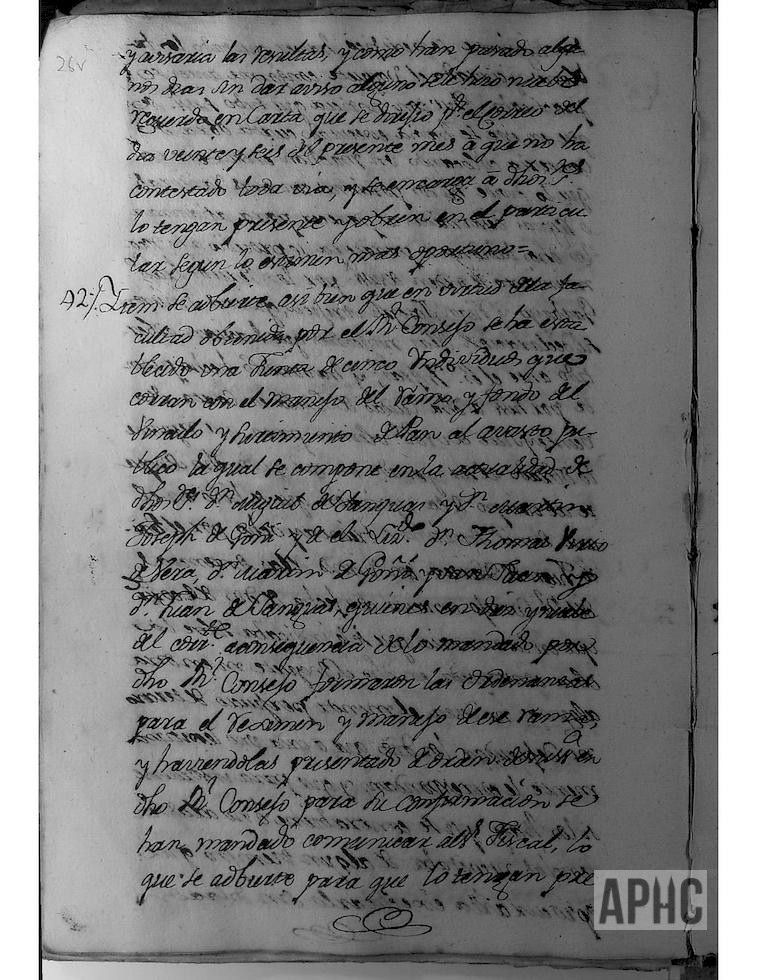 26v
y avisaria las resultas, y como han pasado algu
nos dias sin dar aviso alguno se le hizo nuebo
recuerdo en Carta que se dirijio pr. el Correo del
dia veinte y seis del presente mes â que no ha
contestado toda via, y se encarga â dhos Sres.
lo tengan presente y obren en el particu
lar segun lo estimen mas oportuno=
42./. Ytem se adbierte asi bien que en virtud de la fa
cultad obtenida por el Rl. Consejo se ha esta
blecido una Junta de cinco Yndividuos que
corran con el manejo del ramo y fondo del
Vinculo y surtimiento de Pan al avasto pu-
blico la qual se compone en la actualidad de
dhos Srs. Dn. Miguel de y Dn. Martin
Joseph de Goñi y de el Licdo. Dn. Thomas
de Vera, Dn. Martin de Goñi
Dn. Juan de quienes en diez y nuebe
del corrte. a consequencia de lo mandado por
dho Rl. Consejo formaron las Ordenanzas
para el reximen y manejo de ese ramo,
y haviendolas presentado de orden en
dho Rl. Consejo para su confirmacion se
han mandado comunicar al Sr. Fiscal, lo
que se adbierte para que lo tengan pre
APHC